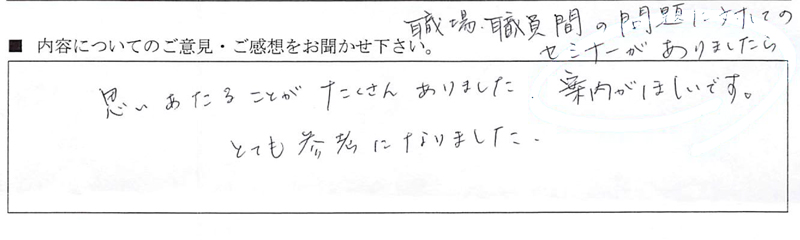 職場・職員間の問題に対しての
■ 内容についてのご意見・ご感想をお聞かせ下さい。
セミナーがありましたら
思いあたることがたくさんありました. 案内がほしいです。
とても参考になりました.